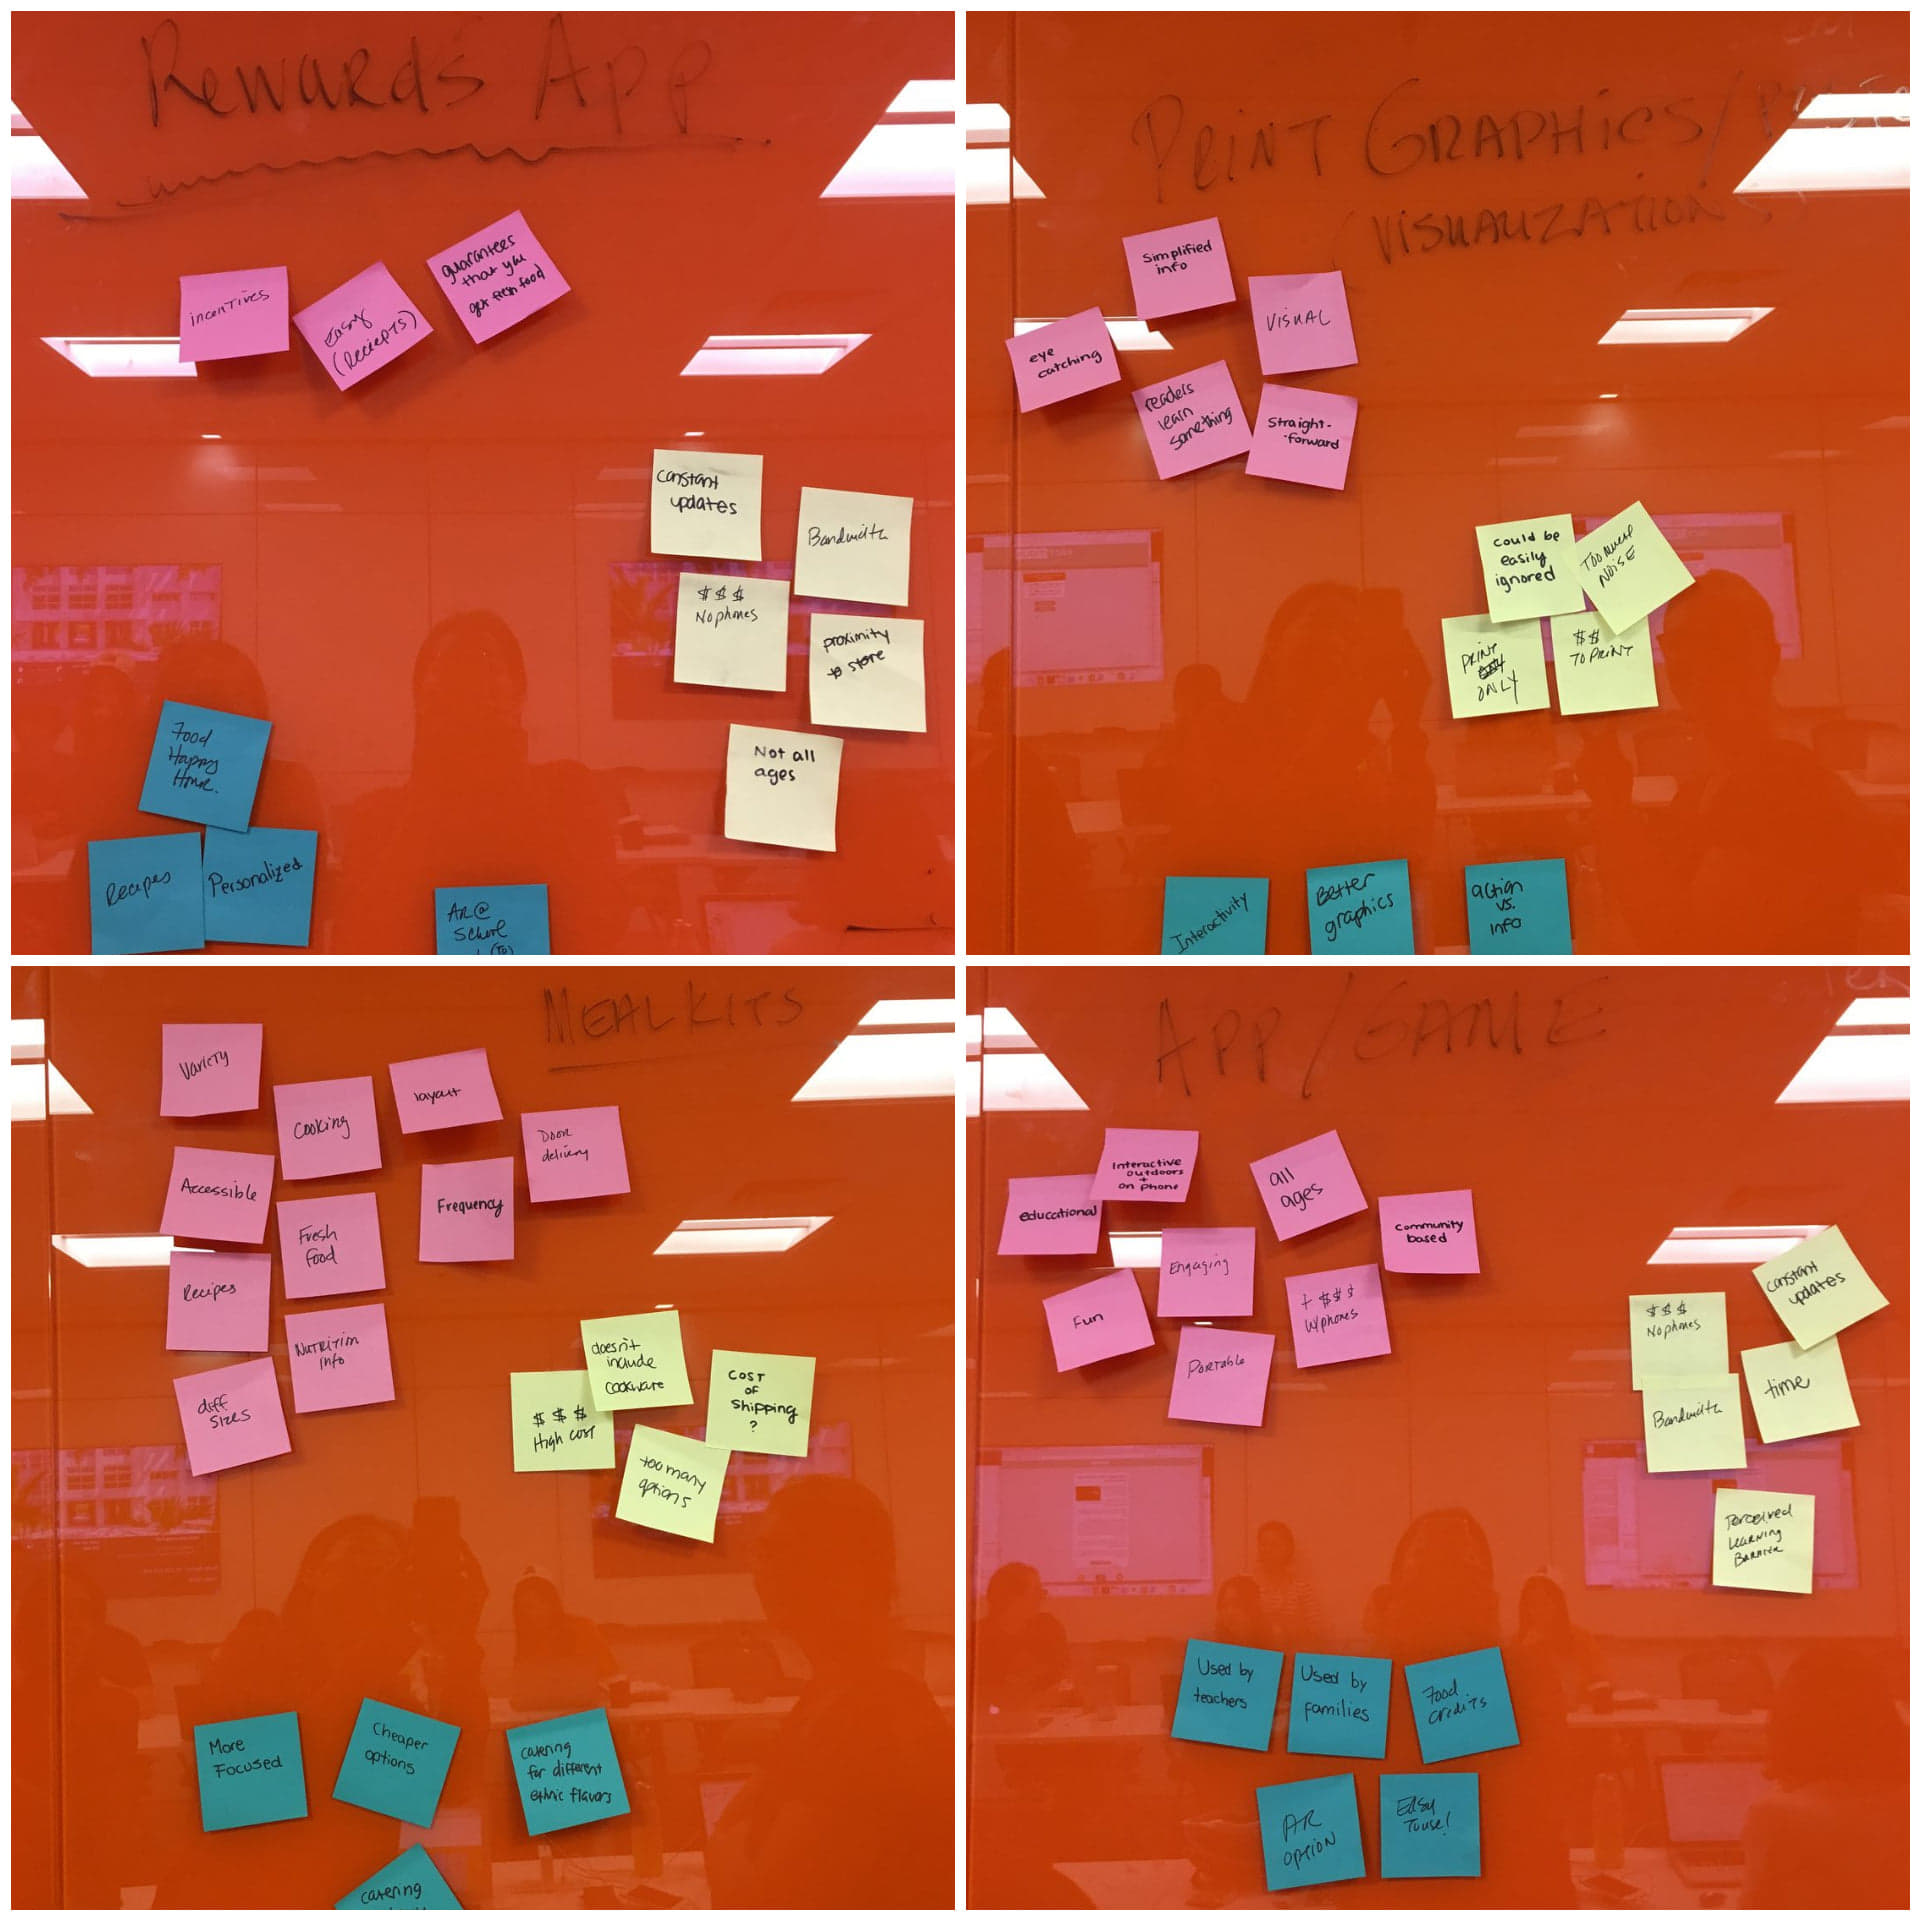 Rewards App
incentives
Easy
(Reciepts)
guarantees
that you
get fresh food
constant
updates
Bandwidth
$ $ $
No phones
proximity
to store
Not all
ages
Food
Happy
Hour.
Recipes
Personalized
AR @
School
(To)
Print Graphics/
(Visualizations)
Simplified
info
Visual
eye
catching
readers
learn
something
Straight-
forward
could be
easily
ignored
Too much
Noise
Print
Only
$ $
To Print
Interactivity
Better
graphics
action
vs.
info
Meal Kits
Variety
Cooking
layout
Door
delivery
Accessible
Fresh
Food
Frequency
Recipes
Nutrition
Info
diff
sizes
doesn't
include
cookware
$ $ $
High cost
Cost
of
Shipping
?
too many
options
More
Focused
Cheaper
options
catering
for different
ethnic flavors
catering
App/Game
Interactive
outdoors
+
on phone
educational
all
ages
Community
based
Engaging
Fun
+ $ $ $
w/phones
Portable
constant
updates
$ $ $
No phones
time
Bandwidth
Perceived
Learning
Barrier
Used by
teachers
Used by
families
Food
credits
AR
option
Easy
To use!